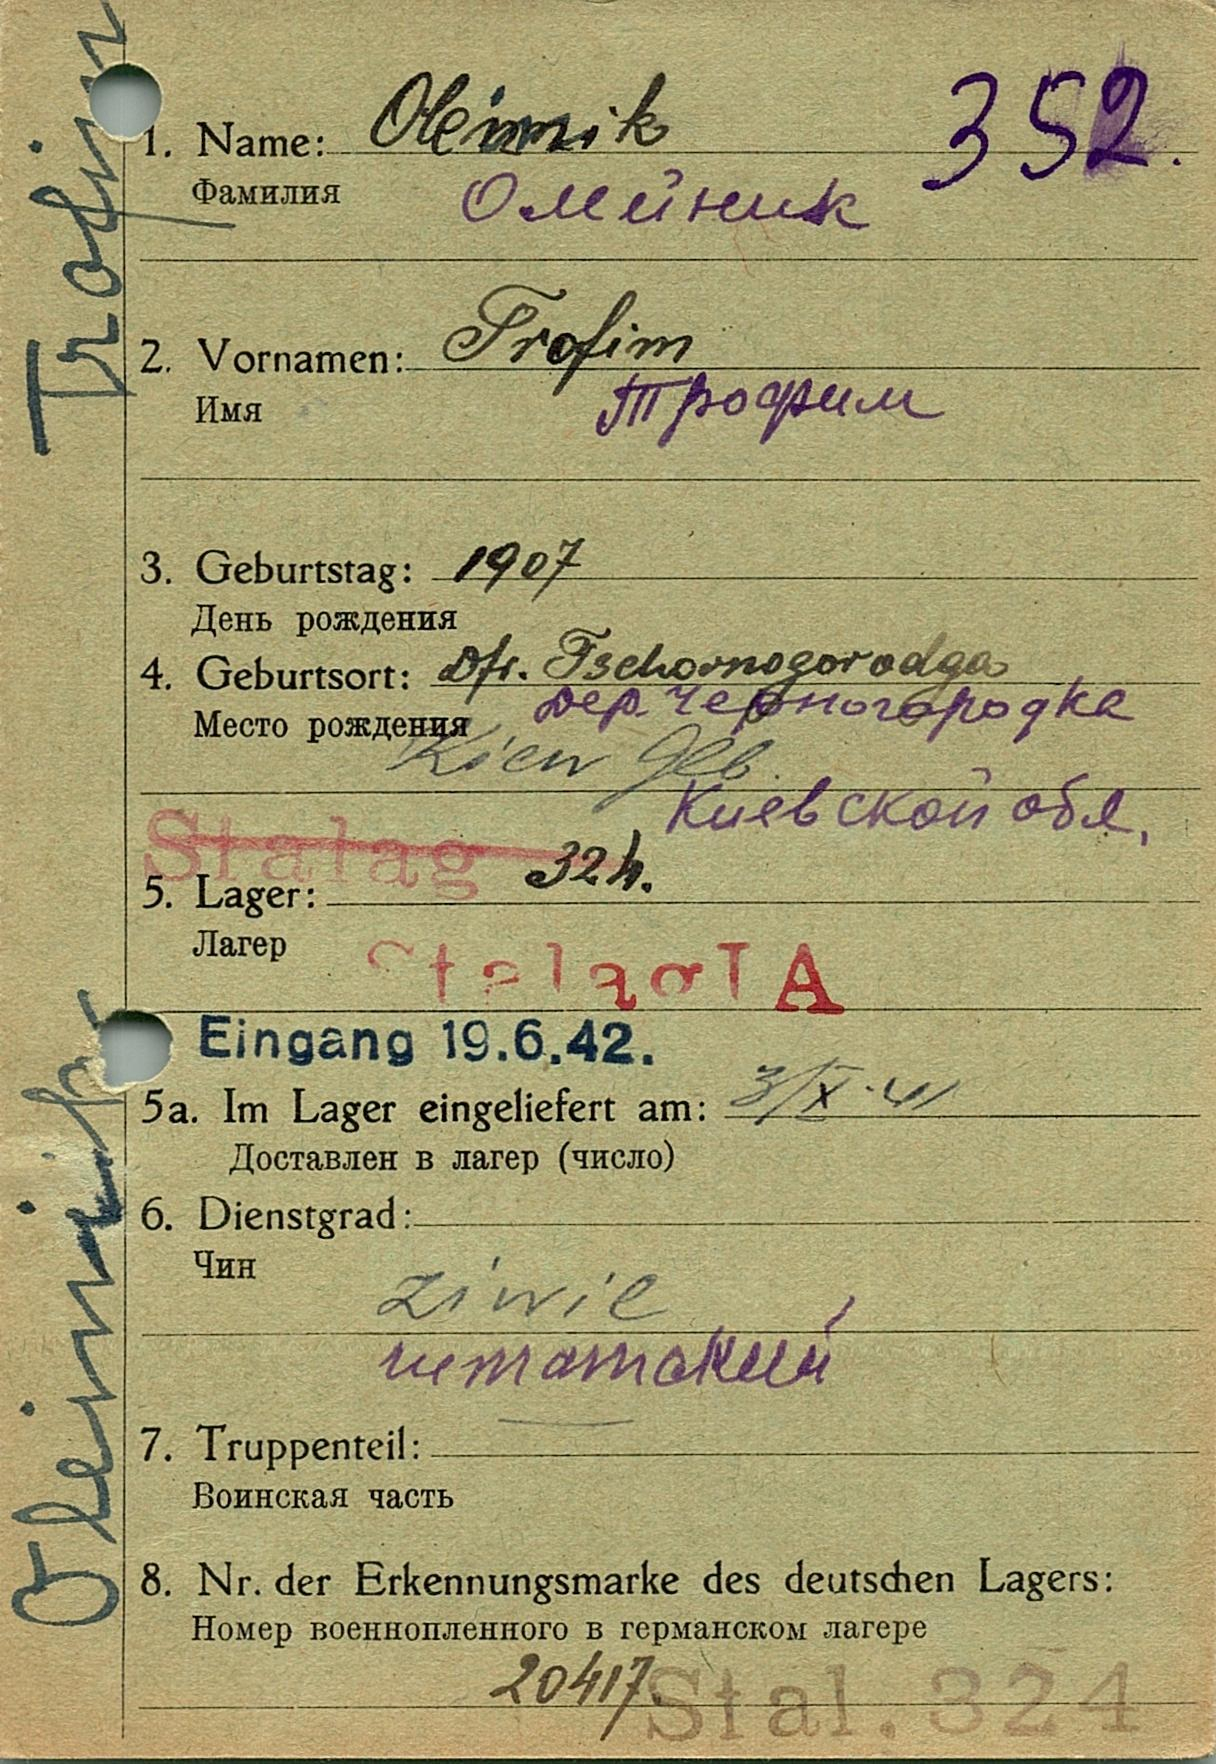 Oleinik Trofim
352.
1. Name: Oleinik
Фамилия Олейник
2. Vornamen: Trofim
Имя Трофим
3. Geburtstag: 1907
День рождения
4. Geburtsort: Dfr. Tschornogorodga
Место рождения дер. Черногородка
Kiew Geb.
Киевской обл.
Stalag 324.
5. Lager:
Лагер
Stalag I A
Eingang 19.6.42.
5a. Im Lager eingeliefert am: 3/X. 41
Доставлен в лагер (число)
6. Dienstgrad:
Чин
Ziwil
штатский
7. Truppenteil:
Воинская часть
8. Nr. der Erkennungsmarke des deutschen Lagers:
Номер военнопленного в германском лагере
20417.
Stal. 324